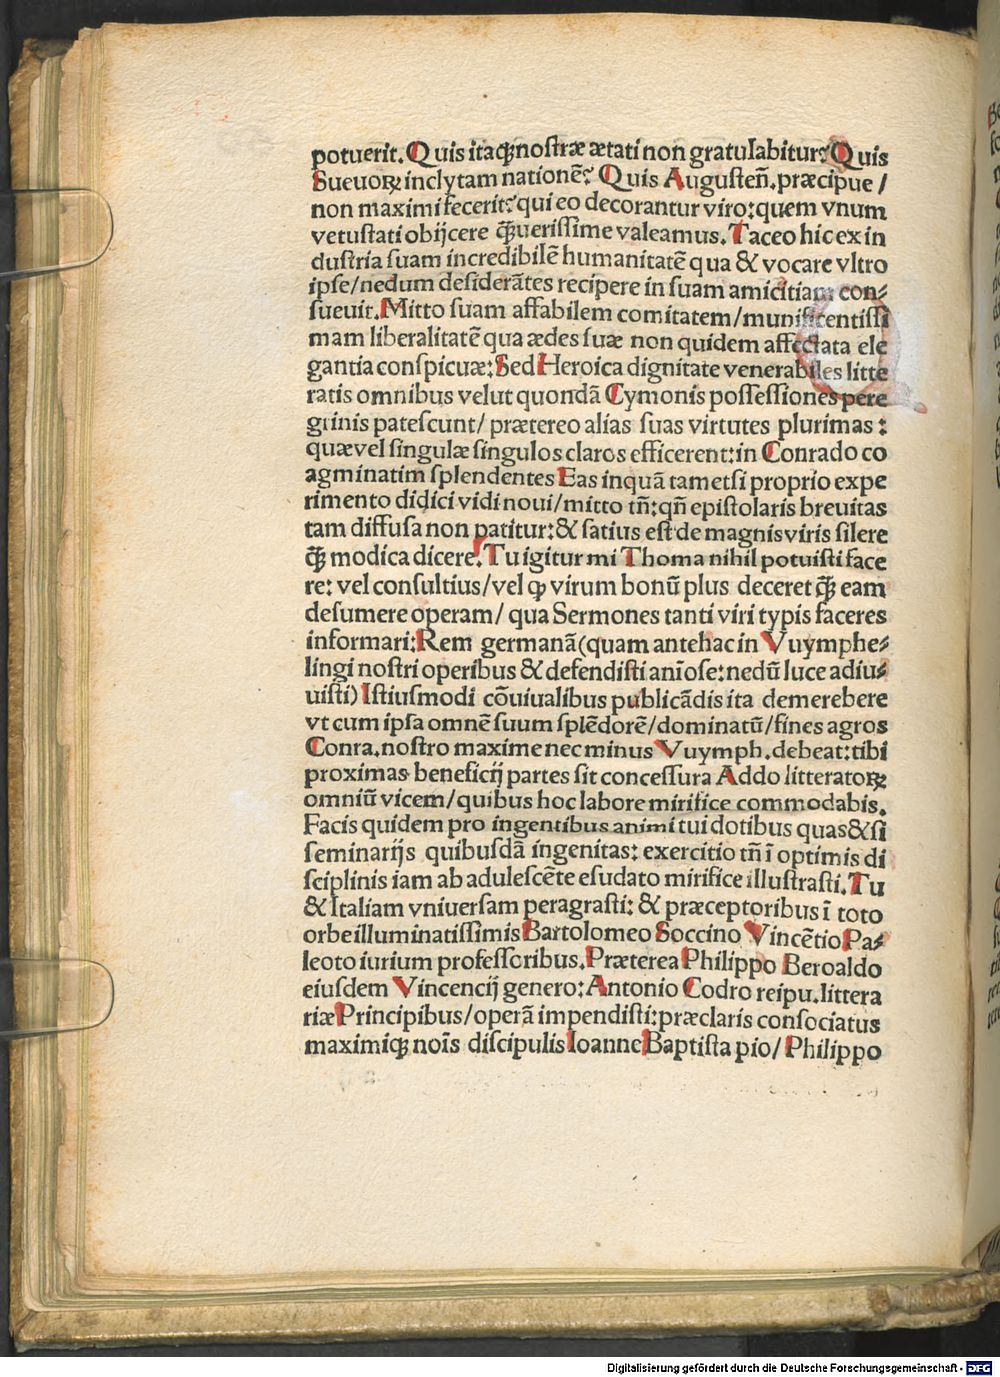 potuerit. Quis itaqꝫ nostræ ætati non gratulabitur? Quis
Sueuoꝝ inclytam nationē? Quis Augusteñ. præcipue /
non maximi fecerit? qui eo decorantur viro: quem vnum
vetustati obijcere q̃ꝫ uerissime valeamus. Taceo hic ex in
dustria suam incredibilē humanitatē qua & vocare vltro
ipse/nedum desiderātes recipere in suam amicitiam con⸗
sueuit. Mitto suam affabilem comitatem/munificentissi
mam liberalitatē qua ædes suæ non quidem affectata ele
gantia conspicuæ: Sed Heroica dignitate venerabiles litte
ratis omnibus velut quondā Cymonis possessiones pere
grinis patescunt/ prætereo alias suas virtutes plurimas :
quæ vel singulæ singulos claros efficerent: in Conrado co
agminatim splendentes Eas inquā tametsi proprio expe
rimento didici vidi noui/mitto tñ: qñ epistolaris breuitas
tam diffusa non patitur: & satius est de magnis viris silere
q̃ꝫ modica dicere. Tu igitur mi Thoma nihil potuisti face
re: vel consultius/vel qꝫ virum bonū plus deceret q̃ꝫ eam
desumere operam/ qua Sermones tanti viri typis faceres
informari: Rem germanā (quam antehac in Vuymphe⸗
lingi nostri operibus & defendisti anīose: nedū luce adiu⸗
uisti) Istiusmodi cōuiualibus publicādis ita demerebere
vt cum ipsa omnē suum splēdorē/dominatū/fines agros
Conra. nostro maxime nec minus Vuymph. debeat: tibi
proximas beneficij partes sit concessura Addo litteratoꝝ
omniū vicem/quibus hoc labore mirifice commodabis.
Facis quidem pro ingentibus animi tui dotibus quas & si
seminarijs quibusdā ingenitas: exercitio tñ ī optimis di
sciplinis iam ab adulescēte esudato mirifice illustrasti. Tu
& Italiam vniuersam peragrasti: & præceptoribus ī toto
orbe illuminatissimis Bartolomeo Soccino Vincētio Pa⸗
leoto iurium professoribus. Præterea Philippo Beroaldo
eiusdem Vincencij genero: Antonio Codro reipu. littera
riæ Principibus/operā impendisti: præclaris consociatus
maximiqꝫ noīs discipulis Ioanne Baptista pio/ Philippo
Digitalisierung gefördert durch die Deutsche Forschungsgemeinschaft - DFG